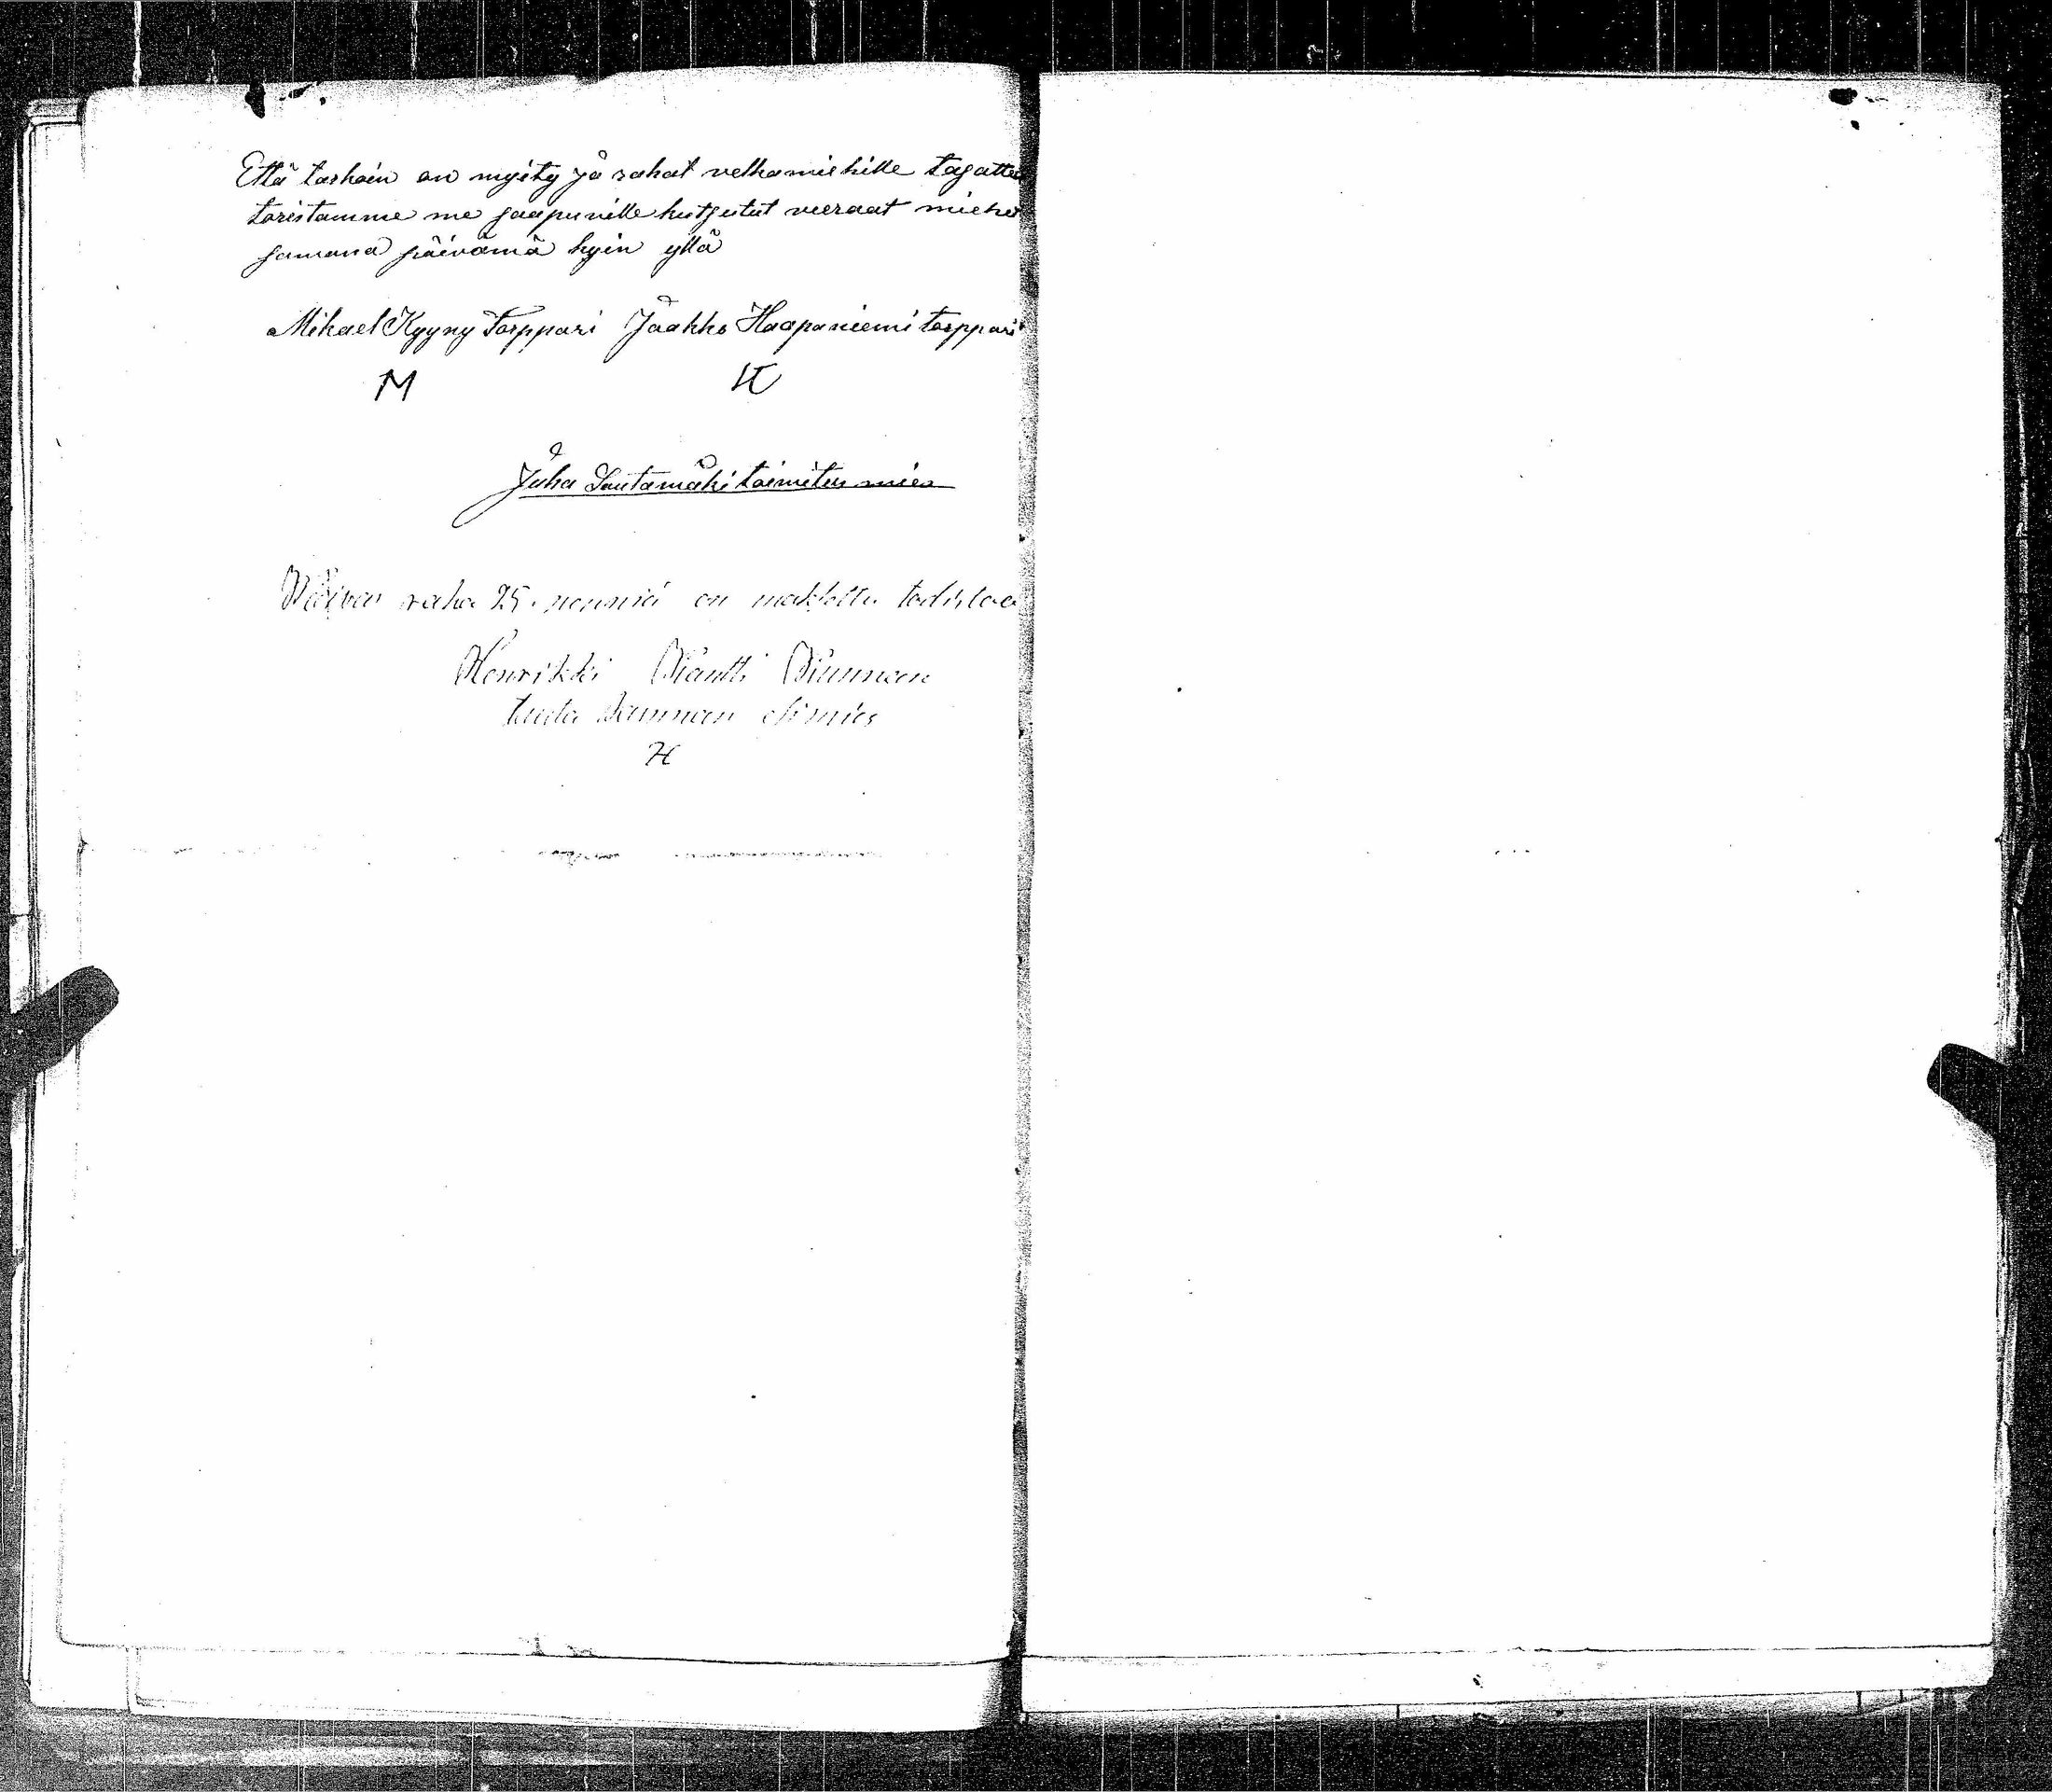 Että tarkoin on myity ja rahat velkamiehille tagattu
toristamme me saapuville kutsutut vieraat miehet
samana päivämä kyin yllä
Mikael Kyyny Torppari Jaakko Haapaniemi torppari
M H
Juha Sautamäki toimitus mies
Waivas raha 25. penniä on maksettu todistaa
Henrikki Mantti
H